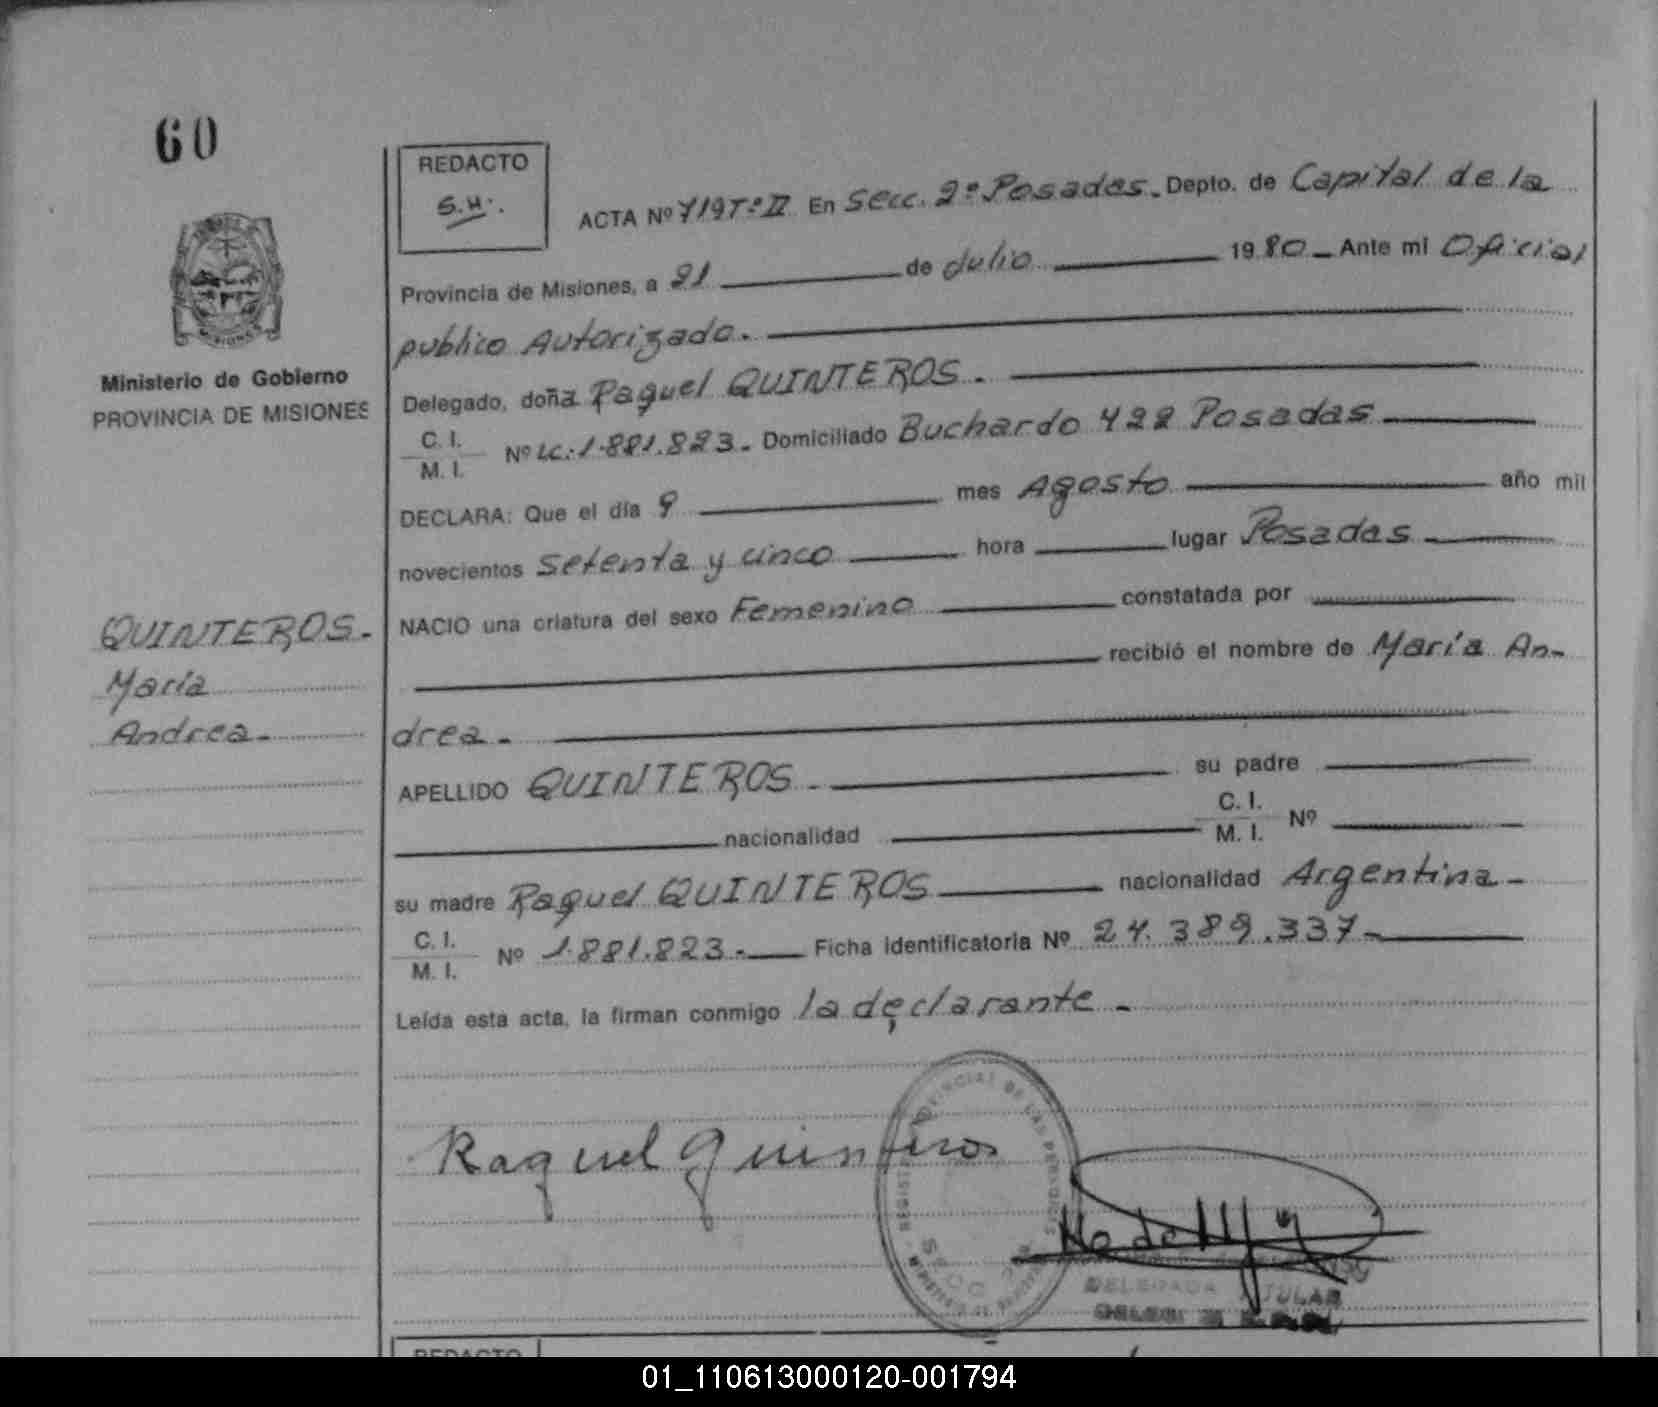 60
REDACTO
S.H.
ACTA Nº 719 Tº II En Secc. 2ª Posadas. Depto. de Capital de la
Provincia de Misiones, a 21 de Julio 1980 Ante mi Oficial
publico Autorizado.
Ministerio de Gobierno
PROVINCIA DE MISIONES
Delegado, doña Raquel QUINTEROS.
C. I.
M. I.
Nº LC. 1.881.823. Domiciliado Buchardo 422 Posadas
DECLARA: Que el día 9 mes Agosto año mil
novecientos setenta y cinco hora lugar Posadas
NACIO una criatura del sexo Femenino constatada por
recibió el nombre de María An-
drea.
QUINTEROS.
María
Andrea.
APELLIDO QUINTEROS. su padre
nacionalidad C. I. M. I. Nº
su madre Raquel QUINTEROS nacionalidad Argentina
C. I.
M. I.
Nº 1.881.823. Ficha identificatoria Nº 24.389.337
Leída esta acta, la firman conmigo la declarante.
Raquel Quinteros
DELEGADA TITULAR
REDACTO
01_110613000120-001794